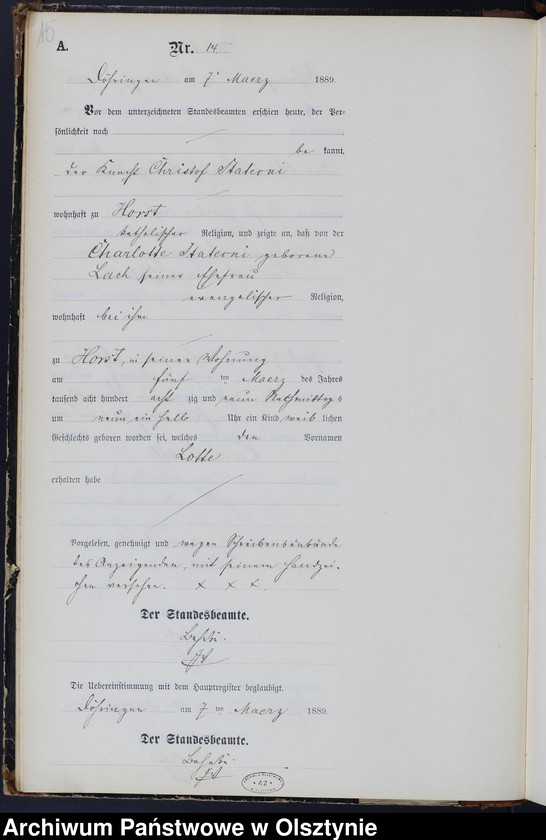 15
A.
Nr. 14
Döhringen am 7' Maerz 1889.
Vor dem unterzeichneten Standesbeamten erschien heute, der Per=
sönlichkeit nach
be kannt,
der Knecht Christof Staterni
wohnhaft zu Horst
katholischer Religion, und zeigte an, daß von der
Charlotte Staterni geborene
Lach seiner Ehefrau
evangelischer Religion,
wohnhaft bei ihm
zu Horst, in seiner Wohnung
am fünf ten Maerz des Jahres
tausend acht hundert acht zig und neun Nachmittags
um neun ein halb Uhr ein Kind weib lichen
Geschlechts geboren worden sei, welches den Vornamen
Lotte
erhalten habe
Vorgelesen, genehmigt und wegen Schreibensunkunde
des Anzeigenden, mit seinem Handzei=
chen versehen. x x x.
Der Standesbeamte.
Die Uebereinstimmung mit dem Hauptregister beglaubigt.
Döhringen am 7 ten Maerz 1889.
Der Standesbeamte.
42
Archiwum Państwowe w Olsztynie